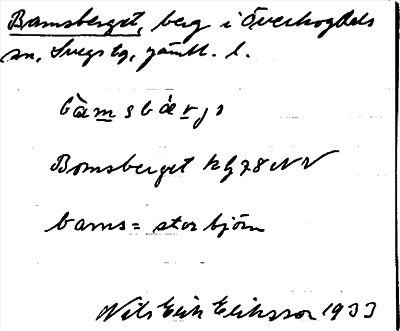 Bamsberget, berg i Överhogdals
sn, Svegs tg, Jämtl. l.
bàmsbærjə
Bomsberget kbl 78 NV
bams = stor björn
Nils Erik Eriksson 1933